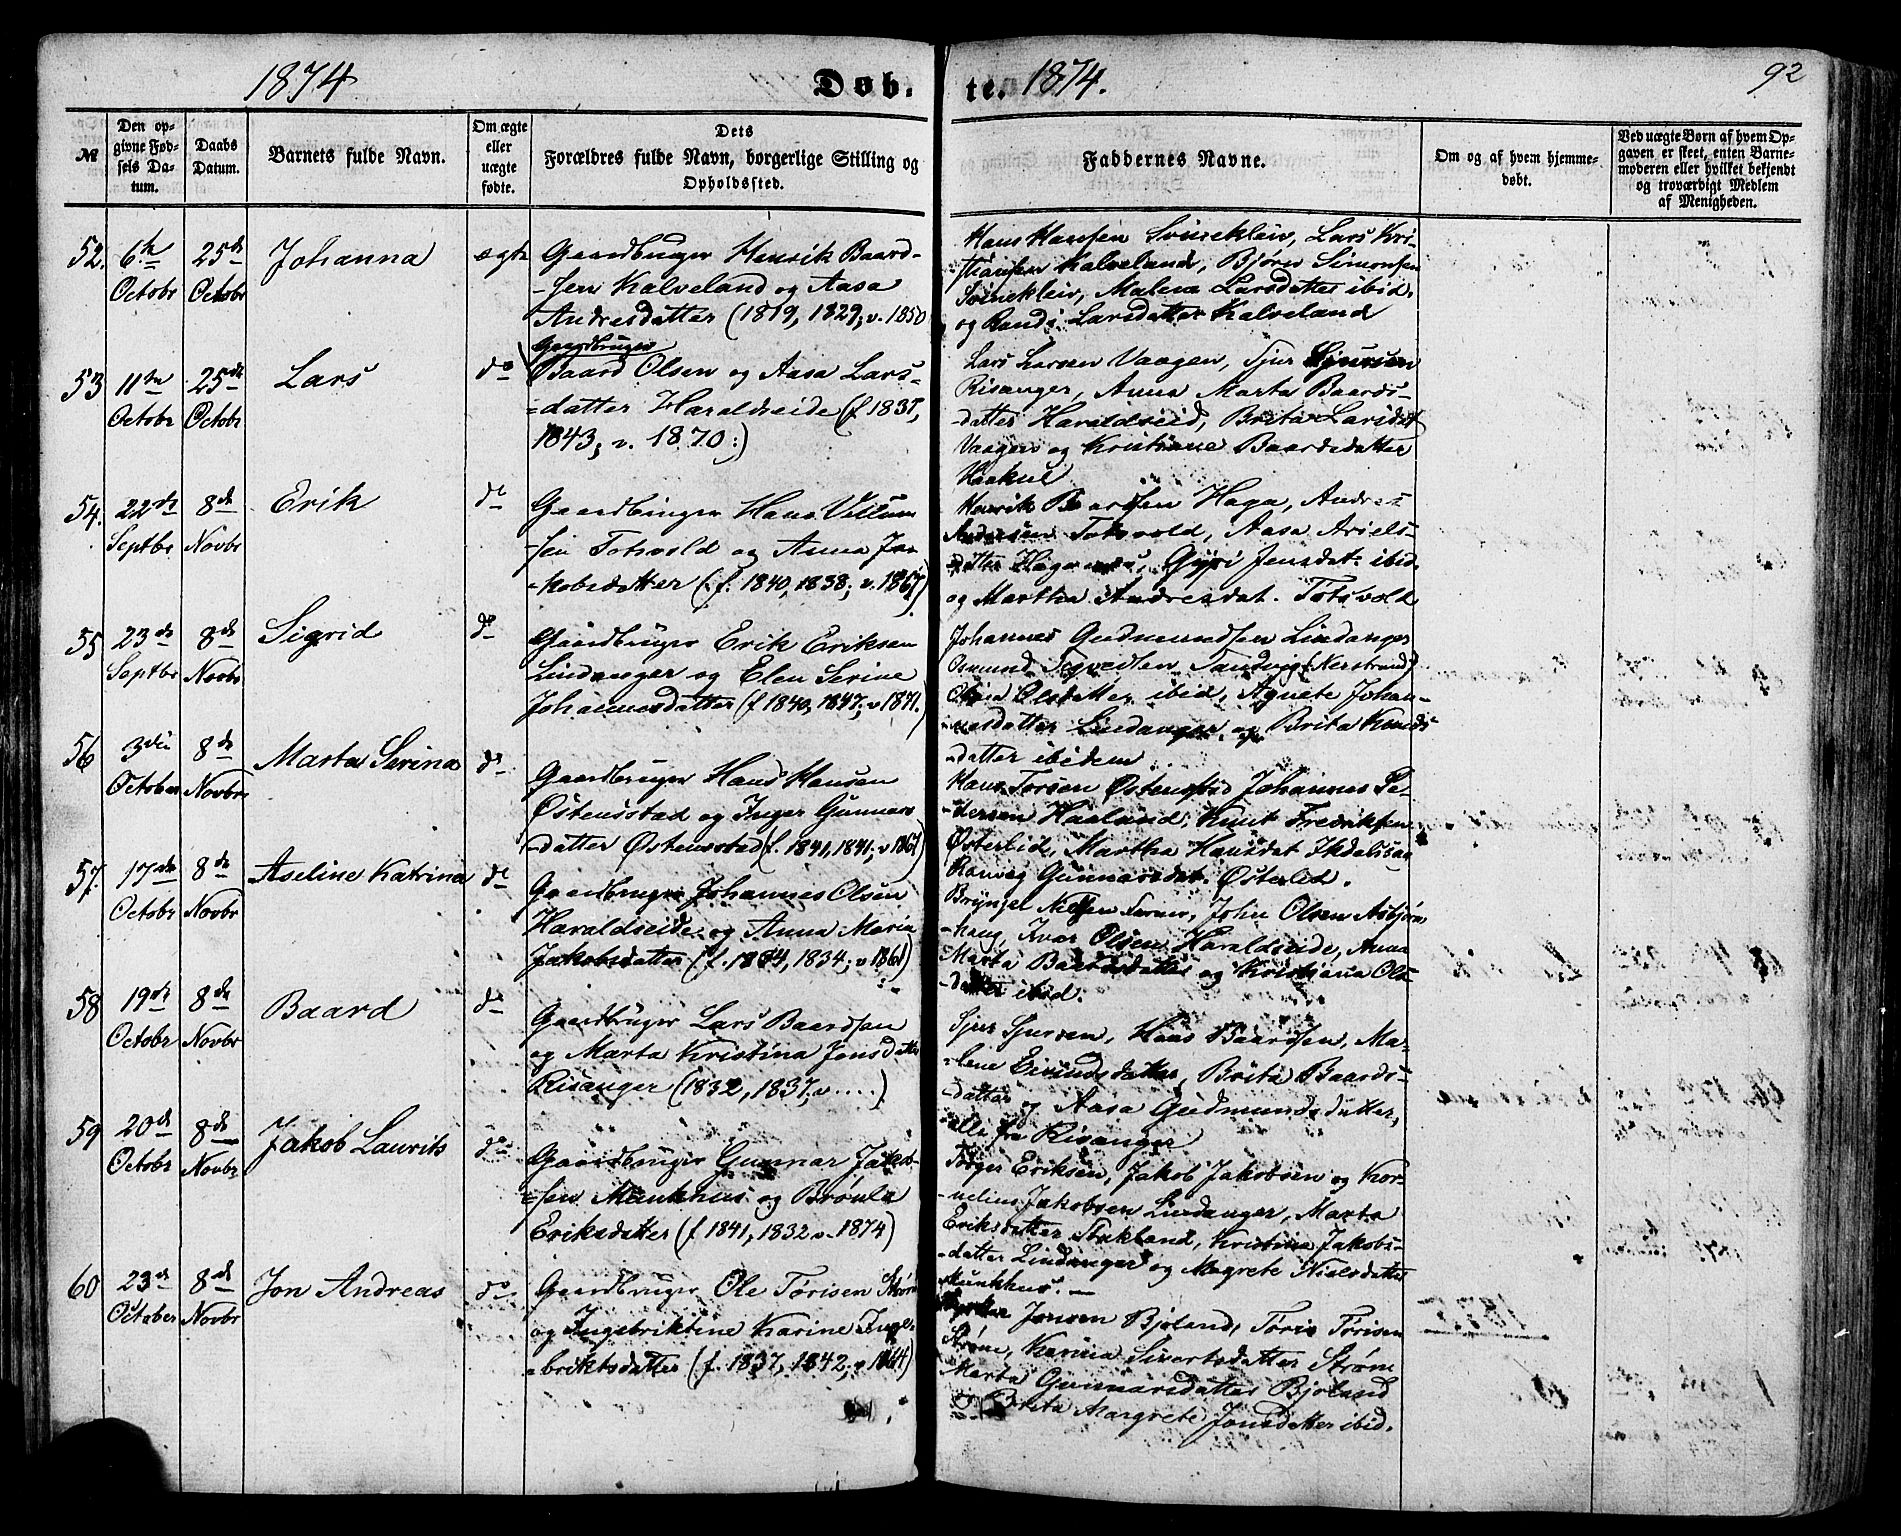 1874
Døb-
te.
1874.
92
№
Den op-
givne Fød-
sels Da-
tum.
Daabs
Datum.
Barnets fulde Navn.
Om ægte
eller
uægte
fødte.
Dets
Forældres fulde Navn, borgerlige Stilling og
Opholdssted.
Faddernes Navne.
Om og af hvem hjemme-
døbt.
Ved uægte Børn af hvem Op-
gaven er skeet, enten Barne-
moderen eller hvilket bekjendt
og troværdigt Medlem
af Menigheden.
52. 6te Octobr 25de Octobr Johanna ægte
Gaardbruger Henrik Baard-
-sen Kalveland og Aasa
Andresdatter (1819, 1829; v. 1850
Hans Hansen Svinekleiv, Lars Kri-
stiansen Kalveland, Bjørn Simonsen
Svinekleiv, Malena Larsdatter ibid.
og Randi Larsdatter Kalveland
53 11te Octobr 25de Octobr Lars do
Gaardbruger
Baard Olsen og Aasa Lars-
=datter Haraldseide (f 1837,
1843; v. 1870:)
Lars Larsen Vaagen, Sjur Sjursen
Risanger, Anna Marta Baards-
-datter Haraldseid, Brita Larsdat
Vaagen og Kristiane Baardsdatter
Haakul
54. 22de Septbr 8de Novbr Erik do
Gaardbruger Hans Villum
-sen Totsvold og Anna Ja-
-kobsdatter (: f. 1840, 1838; v. 1867)
Henrik Baardsen Haga, Andres
Andersen Totsvold, Aasa Ariels-
datter Haga, Gyri Jensdat- ibid
og Martha Andresdat. Totsvold
55 23de Septbr 8de Novbr Sigrid do
Gaardbruger Erik Eriksen
Lindanger og Elen Serine
Johannesdatter (f 1840, 1847; v 1871.)
Johannes Gudmundsen Lindanger
Osmund Sandvig (Nerstrand)
Olsdatter ibid, Agnete Johan-
-nesdatter Lindanger og Brita Knuds-
-datter ibidem
56 3die October 8de Novbr Marta Serina do
Gaardbruger Hans Hansen
Østensstad og Inger Gunnars
-datter Østensstad (f. 1841, 1841; v 1867)
Hans Torsen Østensstad Johannes Pe-
-dersen Haaland, Knut Fredriksen
Østerlid, Martha Hansdat
Ranveig Gunnarsdat. Østerlid.
57. 17de Octobr 8de Novbr Aseline Katrina do
Gaardbruger Johannes Olsen
Haraldseide og Anna Maria
Jakobsdatter (f. 1834, 1834; v 1861)
Bryngel Nilsen John Olsen Asbjørn
-haug, Ivar Olsen Haraldseide, Anna
Marta Baardsdatter og Kristiana Ols-
-datter ibid.
58 19de Octobr 8de Novbr Baard do
Gaardbruger Lars Baardsen
og Marta Kristina Jonsdatter
Risanger (1832, 1837, v. ....)
Sjur Sjursen, Hans Baardsen, Ma-
-lene Eivindsdatter, Brita Baards-
-datter og Aasa Gudmundsdatter,
alle fra Risanger
59 20de Octobr 8de Novbr Jakob Laurits do
Gaardbruger Gunnar Jakob-
-sen Munkhus og Brønla
Eriksdatter (f 1841, 1832 v. 1874)
Torger Eriksen, Jakob Jakobsen og Kor-
-nelius Jakobsen Lindanger, Marta
Eriksdatter Stokland, Kristina Jakobs-
-datter Lindanger og Magrete Nielsdatter
Munkhus. —
60 23de October 8de Novbr Jon Andreas do
Gaardbruger Ole Tørisen Strøm
og Ingebriktine Karine Inge-
-briktsdatter (f. 1837, 1842; v 1864)
Jonsen Bjoland, Tøris Tørisen
Strøm, Karina Sivertsdatter Strøm
Marta Gunnarsdatter Bjoland
og Brita Margrete Jonsdatter ibid.